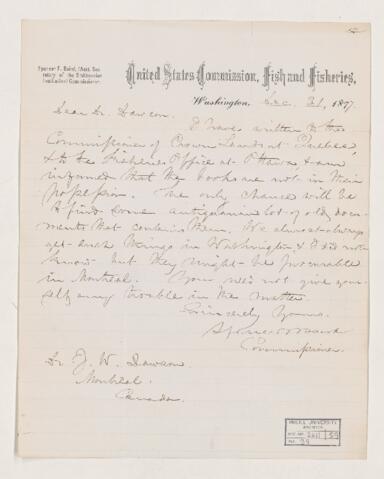 Spencer F. Baird, Asst. Sec-
retary of the Smithsonian
Institution, Commissioner.
United States Commission, Fish and Fisheries,
Washington, Dec. 21, 1877
Dear Dr. Dawson.
I have written to the
Commissioner of Crown Lands at Quebec,
& to the Fisheries Office at Ottawa, & am
informed that the books are not in their
possession. The only chance will be
to find some antiquarian lot of old docu-
ments that contains them. We almost always
get such things in Washington & I did not
know but they might be procurable
in Montreal. You need not give your-
self any trouble in the matter.
Sincerely Yours.
Spencer F Baird
Commissioner.
Dr. J. W. Dawson.
Montreal.
Canada.
McGILL UNIVERSITY
ARCHIVES